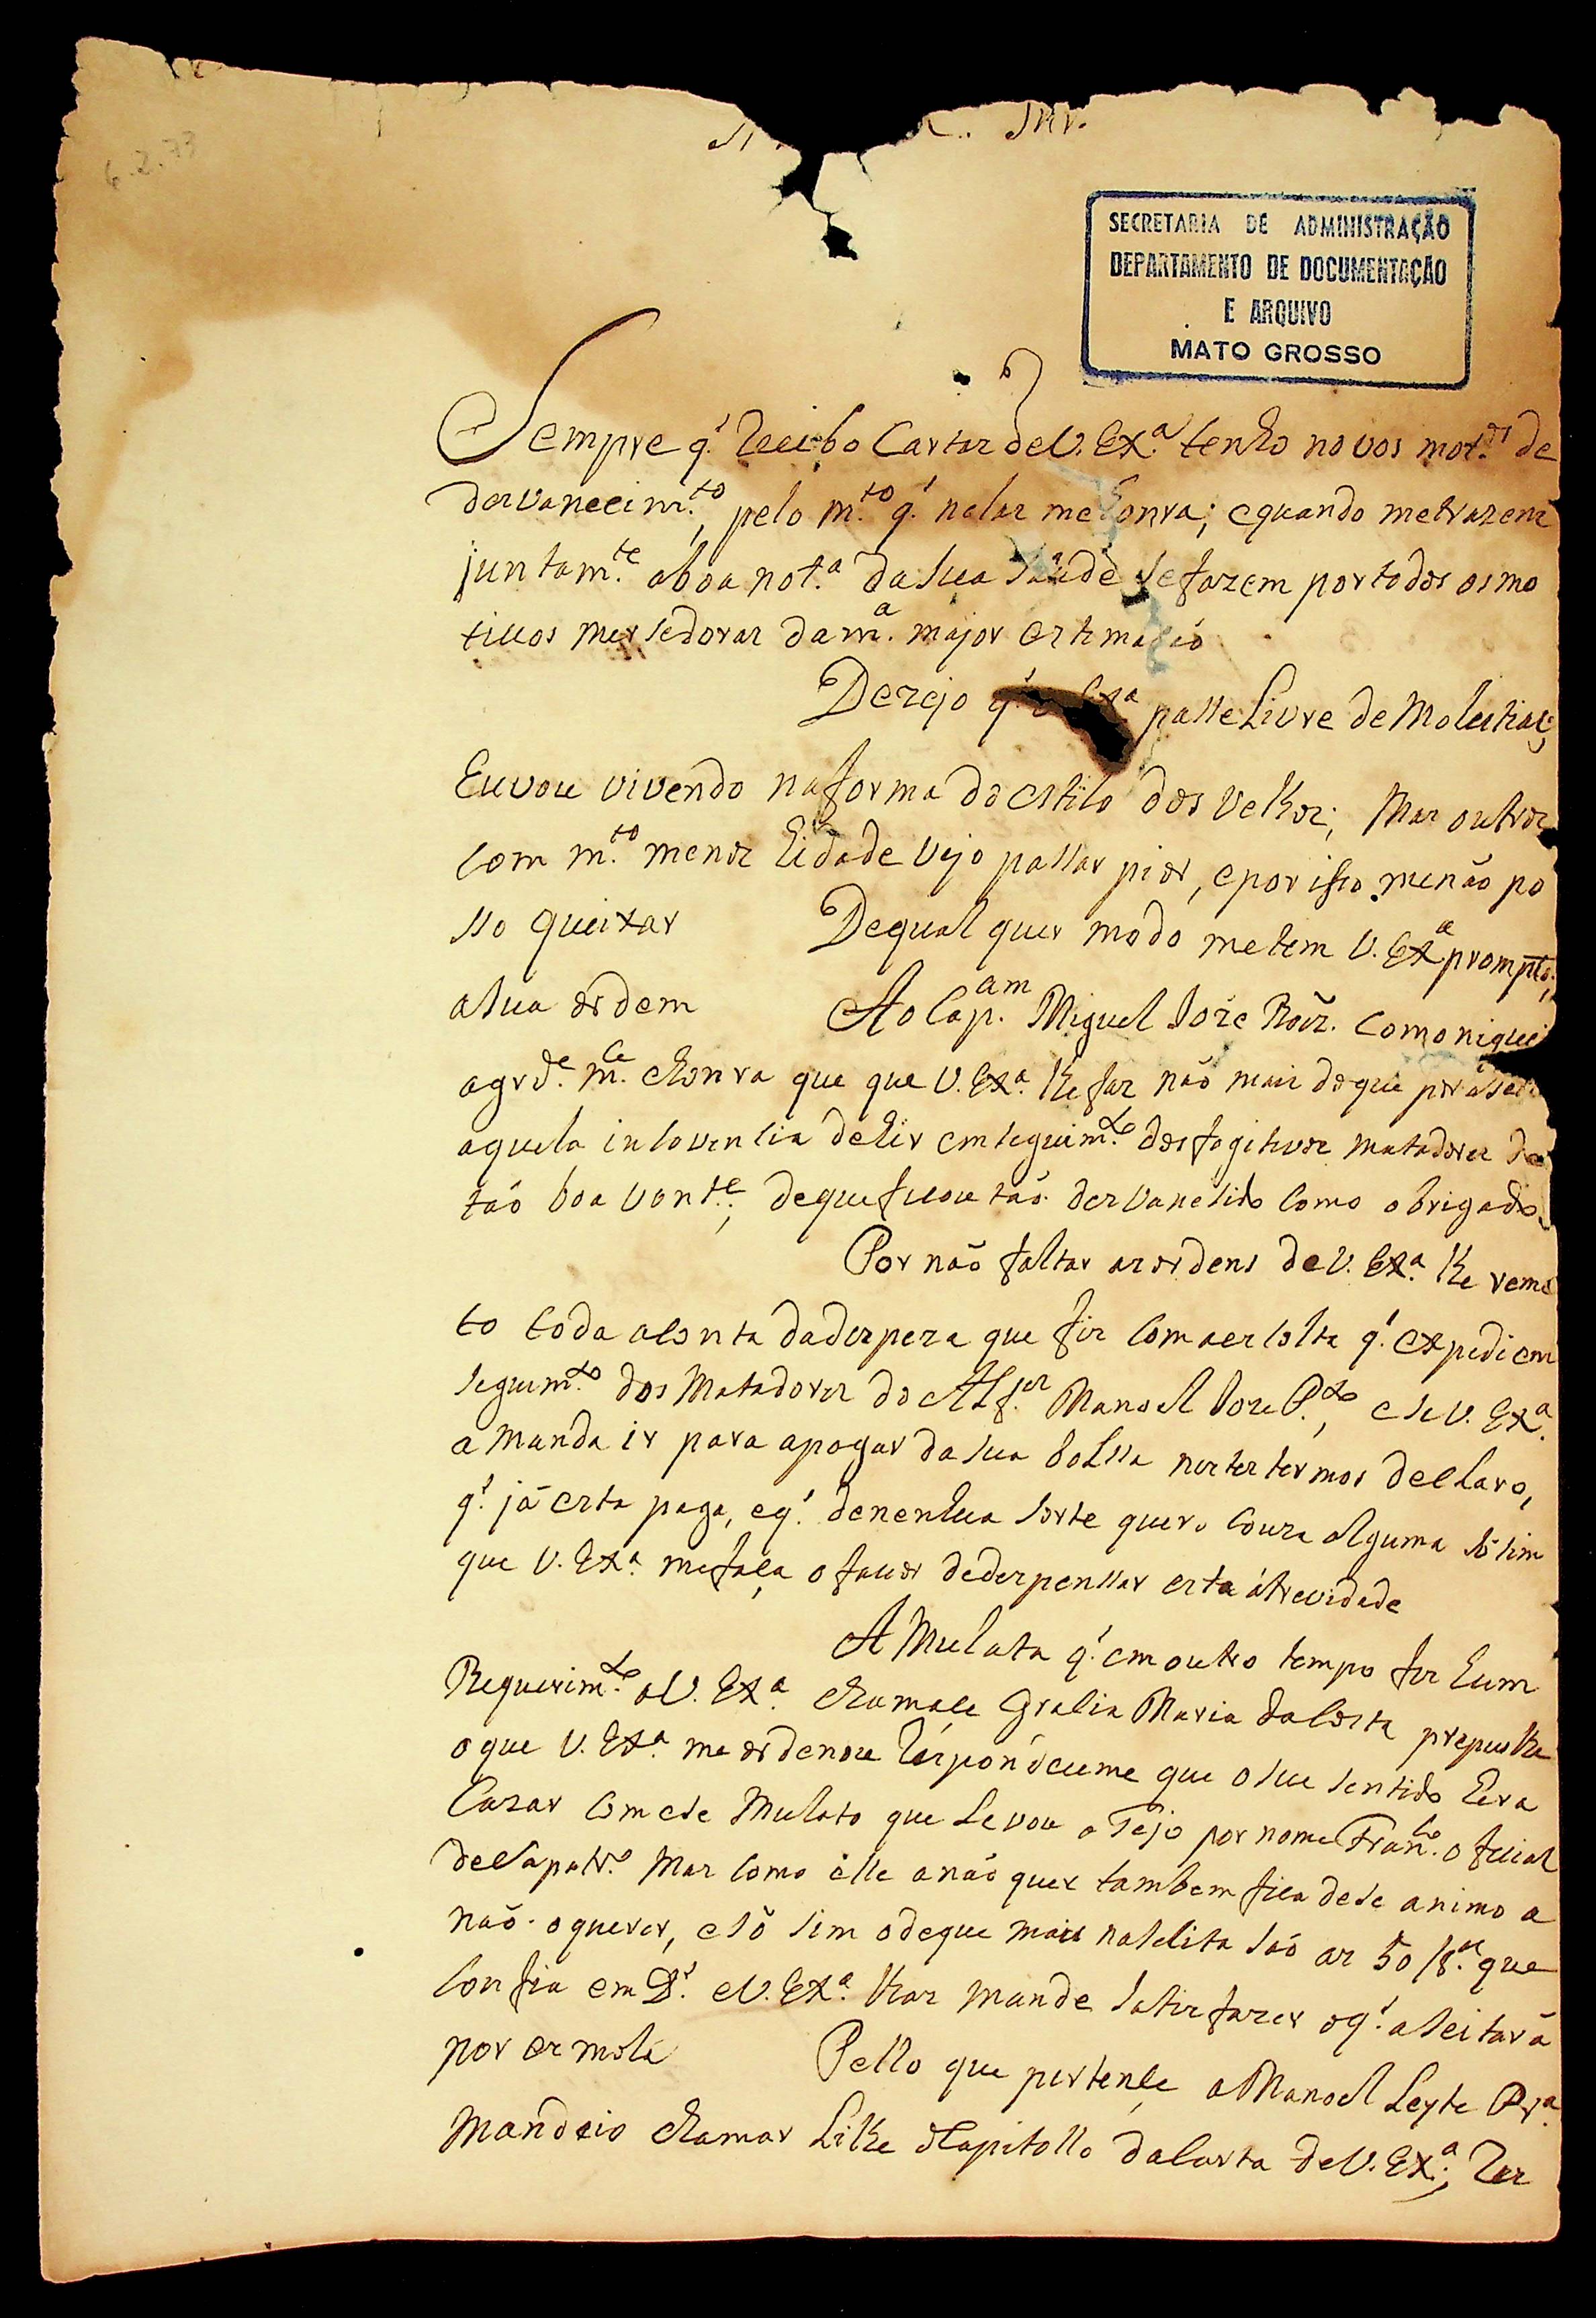 6.2.77
SECRETARIA DE ADMINISTRAÇÃO
DEPARTAMENTO DE DOCUMENTAÇÃO
E ARQUIVO
MATO GROSSO
Sempre q.' Recibo Cartas de V. Ex.ª tenho novos mot.os de
desvanecim.to, pelo m.to q.' nelas me honra; e quando metrazem
juntam.te aboa not.ª dasua saude sefazem portodos osmo
tiuos mersedoras dam.ª major estimasão
Dezejo q' V Ex.ª passe Livre de Molestias;
Euvou vivendo naforma do estilo dos velhos; Mas outros
com m.to menos hidade vejo passar pior, epor isso menão po
sso queixar Dequalquer modo metem V. Ex.ª prompto
asua ordem Ao Cap.am Miguel Joze Roiz. Comoniquei
agrd.e m.ce ehonra que que V. Ex.ª lhe faz não mais doque por
aquela incoventia dehir emseguim.to dosfogitivos matadores de
tão boa vont.e; dequeficou tão desvanesido como obrigado
Por não faltar asordens deV. Ex.ª lhe reme
to toda aconta dadespeza que fis comaescolta q.' expedi em
seguim.to dos Matadores do Alf.es Manoel Joze P.to, e se V. Ex.ª
a manda ir para apagar dasua bolssa nestes termos declaro,
q.' já esta paga, eq.' denenhua sorte quero couza alguma sô sim
que V. Ex.ª mefaça o fauor dedespenssar esta atrevidade
A Mulata q.' emoutro tempo fes hum
Requerim.to aV. Ex.ª chamace Grasia Maria daCosta prepuslhe
oque V. Ex.ª me ordenou Respondeume que oseu sentido hera
Cazar comese Mulato que Levou o Tejo por nome Fran.co ofisial
deSapatr.o Mas como elle anão quer tambem fica dese animo a
não oquerer, esô sim odeque mais nesesita são as 50/8.as que
confia em D.s eV. Ex.ª lhas mande satisfazer oq.' aseitará
por esmola Pello que pertençe aManoel Leyte Pr.ª
Mandeio chamar Lilhe oCapitollo daCarta deV. Ex.ª; Res